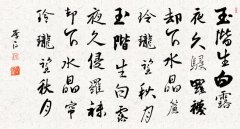 玉階生白露
夜久侵羅襪
却下水晶簾
玲瓏望秋月
玉階生白露
夜久侵羅襪
却下水晶帘
玲瓏望秋月